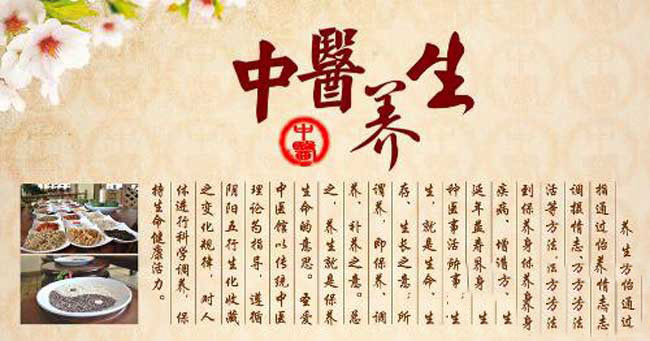 中醫养生
中醫
养生方怡通过
指通过怡养情志志
调摄情志、万方方法
活等方法.法方方法
到保养身体养养身
疾病、增 方、生
延年益寿界身
种医事活所事;.生
生,就是生命、生
存、生长之意;所
谓养,即保养、调
养、补养之意。总
之,养生就是保养
生命的意思。圣爱
中医馆以传统中医
理论为指导,遵循
阴阳五行生化收藏
之变化规律,对人
体进行科学调养,保
持生命健康活力。